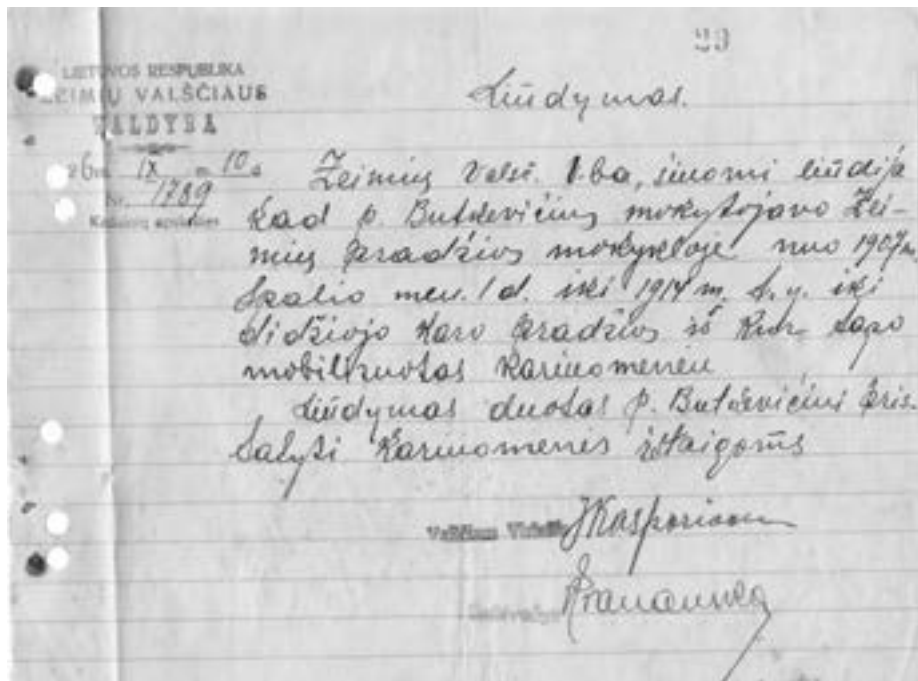 29
LIETUVOS RESPUBLIKA
ŽEIMIŲ VALŠČIAUS
VALDYBA
26 m. IX m. 10 d.
Nr. 1789
Kėdainių apskrities
Liūdymas.
Žeimių Valsč. V-ba, šiuomi liūdija
kad p. Butkevičius mokytojavo Žei-
mių pradžios mokykloje nuo 1907 m.
Spalio mėn. 1 d. iki 1914 m. t. y. iki
didžiojo karo pradžios iš kur tapo
mobilizuotas kariuomenėn
Liūdymas duotas p. Butkevičiui pris-
tatyti kariuomenės įstaigoms
Valsčiaus